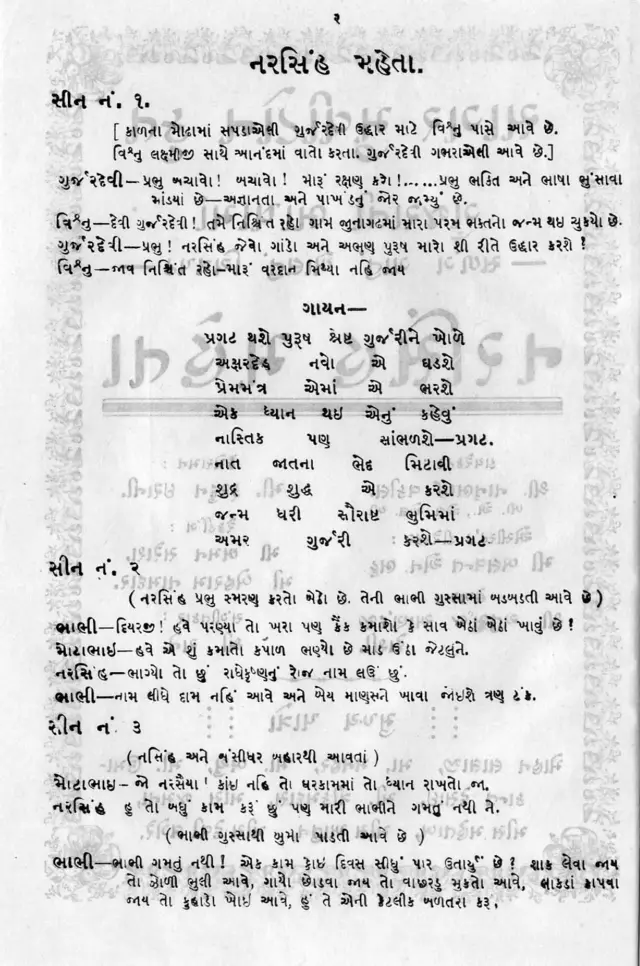 ૨
નરસિંહ મહેતા.
સીન નં. ૧.
[ કાળના મોઢામાં સપડાએલી ગુર્જરદેવી ઉદ્ધાર માટે વિષ્નુ પાસે આવે છે.
વિષ્નુ લક્ષ્મીજી સાથે આનંદમાં વાતો કરતા. ગુર્જરદેવી ગભરાએલી આવે છે.]
ગુર્જરદેવી—પ્રભુ બચાવો! બચાવો! મારૂં રક્ષણ કરો!......પ્રભુ ભકિત અને ભાષા ભુંસાવા
માંડયાં છે—અજ્ઞાનતા અને પાખંડનું જોર જામ્યું છે.
વિષ્નુ—દેવી ગુર્જરદેવી! તમે નિશ્ચિંત રહો ગામ જીનાગઢમાં મારા પરમ ભક્તનો જન્મ થઇ ચુકયો છે.
ગુર્જરદેવી—પ્રભુ! નરસિંહ જેવો ગાંડો અને અભણ પુરૂષ મારો શી રીતે ઉદ્ધાર કરશે!
વિષ્નુ—જાવ નિશ્ચિંત રહો—મારૂં વરદાન મિથ્યા નહિ જાય
ગાયન—
પ્રગટ થશે પુરૂષ શ્રેષ્ટ ગુર્જરીને ખોળે
અક્ષરદેહ નવો એ ઘડશે
પ્રેમમંત્ર એમાં એ ભરશે
એક ધ્યાન થઇ એનું કહેવું
નાસ્તિક પણ સાંભળશે—પ્રગટ.
નાત જાતના ભેદ મિટાવી
શુદ્ર શુદ્ધ એ કરશે
જન્મ ધરી સૌરાષ્ટ ભુમિમાં
અમર ગુર્જરી કરશે—પ્રગટ
સીન નં. ૨
( નરસિંહ પ્રભુ સ્મરણ કરતો બેઠો છે. તેની ભાભી ગુસ્સામાં બડબડતી આવે છે )
ભાભી—દિયરજી! હવે પરણ્યા તો ખરા પણ કૈંક કમાશો કે સાવ બેઠાં બેઠાં ખાવું છે!
મોટાભાઇ—હવે એ શું કમાતો કપાળ ભણ્યો છે માડ ઉંઠા જેટલુને.
નરસિંહ—ભાગ્યો તો છું રાધેકૃષ્ણનું રોજ નામ લઉં છું.
ભાભી—નામ લીધે દામ નહિં આવે અને બેય માણુસને ખાવા જોઇશે ત્રણ ટંક.
સીન નં ૩
( નસિંહ અને બંસીધર બહારથી આવતાં )
મોટાભાઇ- જો નરસૈયા! કાંઇ નહિ તો ઘરકામમાં તો ધ્યાન રાખતો જા.
નરસિંહ હું તો બધું કામ કરૂં છું પણ મારી ભાભીને ગમતું નથી ને.
( ભાભી ગુસ્સાથી બુમો પાડતી આવે છે )
ભાભી—ભાભી ગમતું નથી! એક કામ કોઇ દિવસ સીધું પાર ઉતાર્યું છે? શાક લેવા જાય
તો ઝોળી ભુલી આવે, ગાયો છોડવા જાય તો વાછરડુ મુકતો આવે, લાકડાં કાપવા
જાય તો કુહાડો ખોઇ આવે, હું તે એની કેટલીક બળતરા કરૂ,